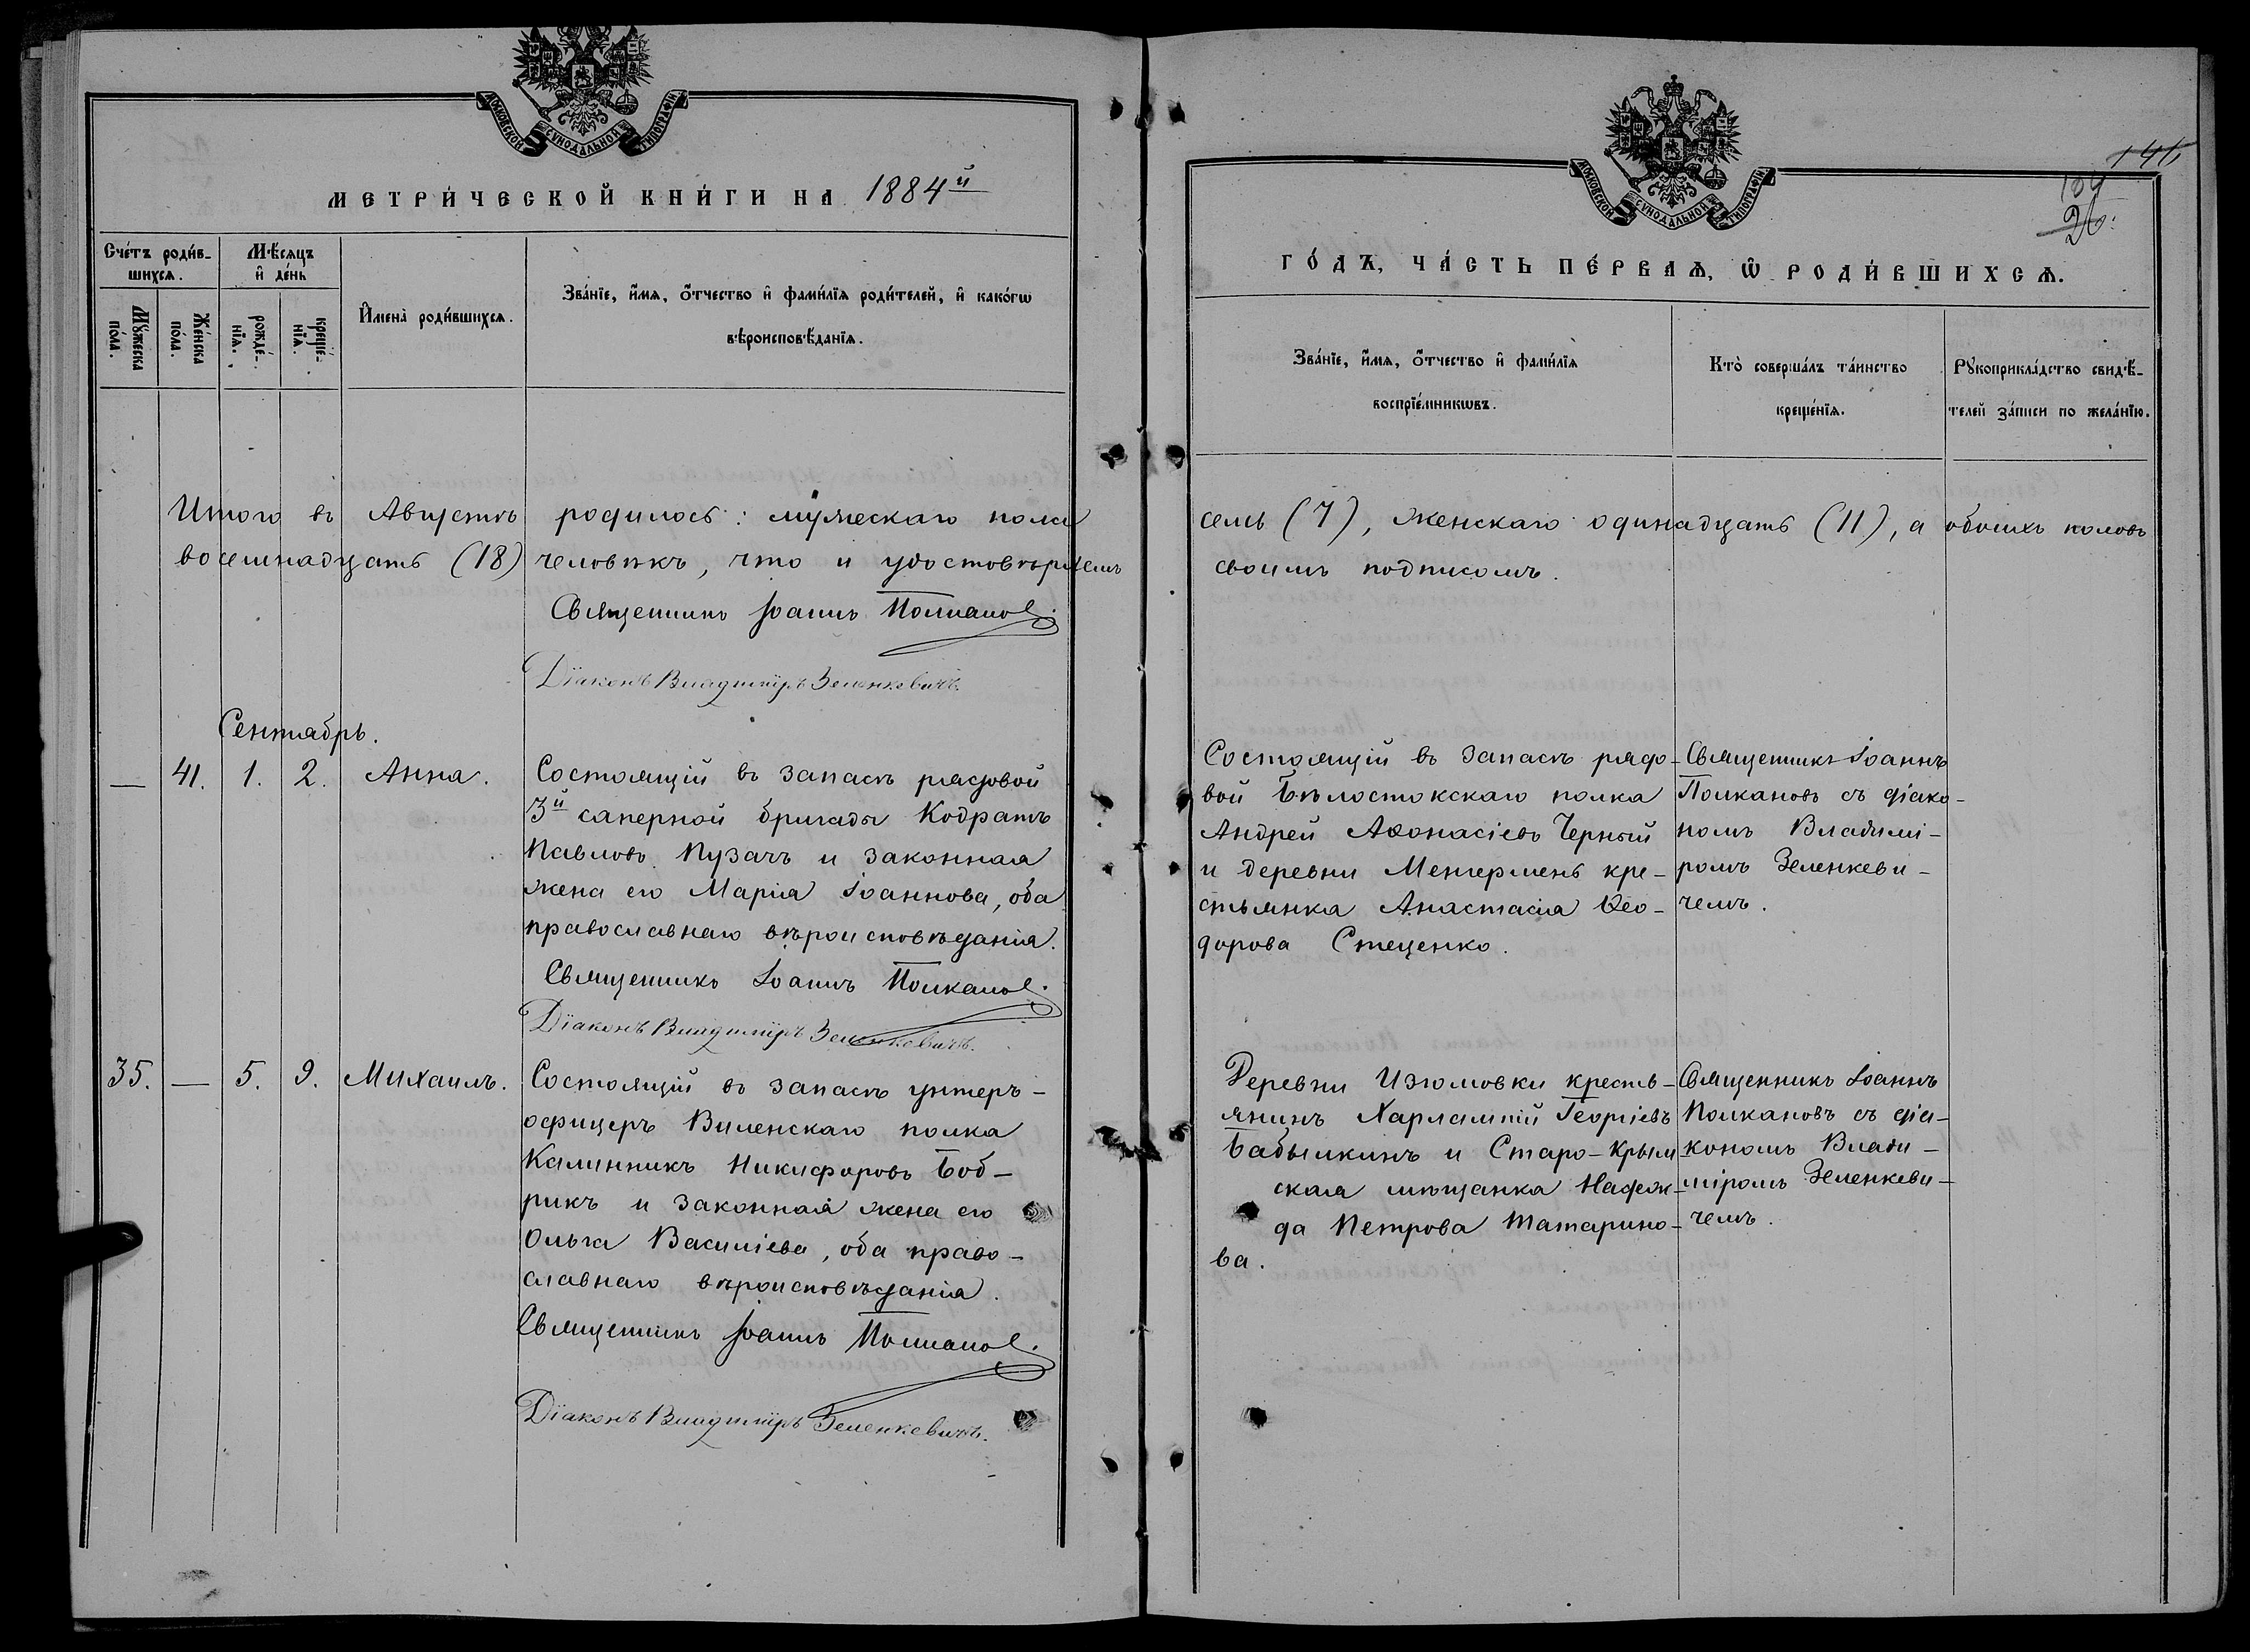 МОСКОВСКОЙ СѴНОДАЛЬНОЙ ТИПОГРАФІИ
МЕТРИ́ЧЕСКОЙ КНИ́ГИ НА 1884й
Сче́тъ роди́в-
шихсѧ.
Мѣ́сѧцъ
и҆ де́нь
Мꙋ́жеска
по́ла.
Же́нска
по́ла.
рожде́-
нїѧ.
креще́-
нїѧ.
И҆мена̀ роди́вшихсѧ.
Зва́нїе, и҆́мѧ, ѻ҆́тчество и҆ фами́лїѧ роди́телей, и҆ како́гѡ
вѣроисповѣ́данїѧ.
Итого въ Августѣ родилось: мужескаго пола
восемнадцать (18) человѣкъ, что и удостовѣряемъ
Священникъ Іоаннъ Полканов.
Дїаконъ Владимїръ Зеленкевичъ.
Сентябрь.
— 41. 1. 2. Анна. Состоящій въ запасѣ рядовой
3й саперной бригады Кодратъ
Павловъ Пузачъ и законная
жена его Марія Іоаннова, оба
православнаго вѣроисповѣданія.
Священникъ Іоаннъ Полканов.
Дїаконъ Владимїръ Зеленкевичъ.
35. — 5. 9. Михаилъ. Состоящій въ запасѣ унтеръ-
офицеръ Виленскаго полка
Калинникъ Никифоровъ Боб-
рикъ и законная жена его
Ольга Василіева, оба право-
славнаго вѣроисповѣданія.
Священникъ Іоаннъ Полканов.
Дїаконъ Владимїръ Зеленкевичъ.
МОСКОВСКОЙ СѴНОДАЛЬНОЙ ТИПОГРАФІИ
146
104
26.
ГО́ДЪ, ЧА́СТЬ ПЕ́РВАѦ, Ѡ҆ РОДИ́ВШИХСѦ.
Зва́нїе, и҆́мѧ, ѻ҆́тчество и҆ фами́лїѧ
воспрїе́мникѡвъ.
Кто̀ соверша́лъ та́инство
креще́нїѧ.
Рꙋкоприкла́дство свидѣ́-
телей за́писи по жела́нїю.
семь (7), женскаго одинадцать (11), а обоихъ половъ
своимъ подписомъ.
Состоящій въ запасѣ рядо-
вой Бѣлостокскаго полка
Андрей Аѳонасіевъ Черный
и деревни Менгермень кре-
стьянка Анастасія Ѳео-
дорова Стеценко.
Священникъ Іоаннъ
Полкановъ съ діако-
номъ Владимі-
ромъ Зеленкеви-
чемъ.
Деревни Изюмовки кресть-
янинъ Харлампій Георгіевъ
Бабылкинъ и Старо-Крым-
ская мѣщанка Надеж-
да Петрова Татарино-
ва.
Священникъ Іоаннъ
Полкановъ съ діа-
кономъ Влади-
міромъ Зеленкеви-
чемъ.